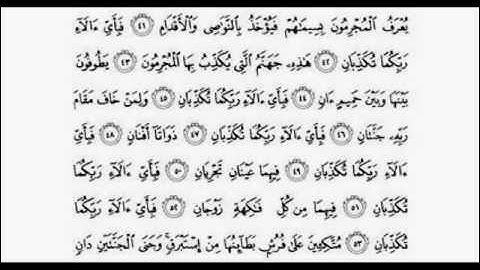 يُعْرَفُ الْمُجْرِمُونَ بِسِيمَاهُمْ فَيُؤْخَذُ بِالنَّوَاصِي وَالْأَقْدَامِ ٤١ فَبِأَيِّ ءَالَآءِ
رَبِّكُمَا تُكَذِّبَانِ ٤٢ هَٰذِهِۦ جَهَنَّمُ الَّتِي يُكَذِّبُ بِهَا الْمُجْرِمُونَ ٤٣ يَطُوفُونَ
بَيْنَهَا وَبَيْنَ حَمِيمٍ ءَانٍ ٤٤ فَبِأَيِّ ءَالَآءِ رَبِّكُمَا تُكَذِّبَانِ ٤٥ وَلِمَنْ خَافَ مَقَامَ
رَبِّهِۦ جَنَّتَانِ ٤٦ فَبِأَيِّ ءَالَآءِ رَبِّكُمَا تُكَذِّبَانِ ٤٧ ذَوَاتَآ أَفْنَانٍ ٤٨ فَبِأَيِّ
ءَالَآءِ رَبِّكُمَا تُكَذِّبَانِ ٤٩ فِيهِمَا عَيْنَانِ تَجْرِيَانِ ٥٠ فَبِأَيِّ ءَالَآءِ رَبِّكُمَا
تُكَذِّبَانِ ٥١ فِيهِمَا مِن كُلِّ فَٰكِهَةٍ زَوْجَانِ ٥٢ فَبِأَيِّ ءَالَآءِ رَبِّكُمَا
تُكَذِّبَانِ ٥٣ مُتَّكِـِٔينَ عَلَىٰ فُرُشٍۭ بَطَآئِنُهَا مِنْ إِسْتَبْرَقٍ ۚ وَجَنَى الْجَنَّتَيْنِ دَانٍ